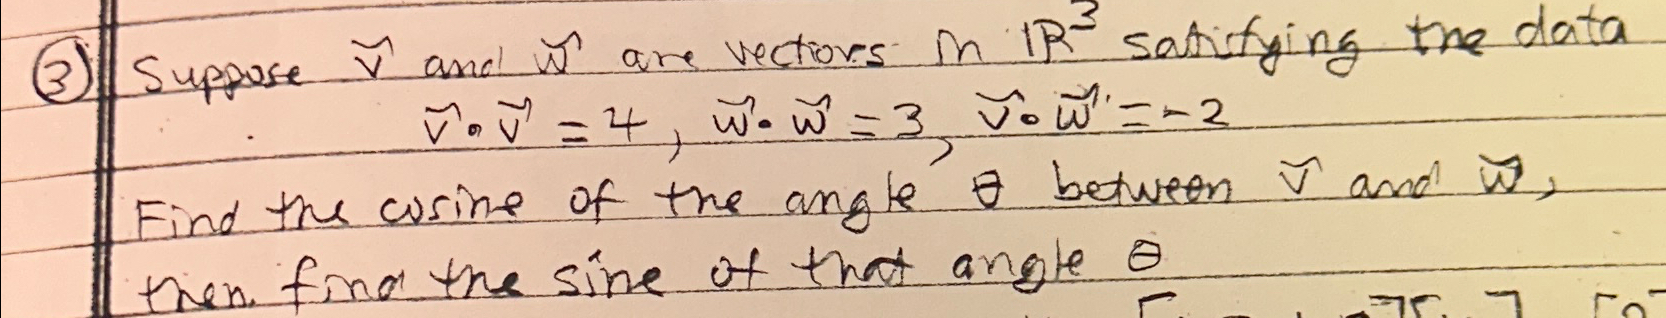 ③ Suppose v⃗ and w⃗ are vectors in ℝ³ satisfying the data
v⃗•v⃗ = 4, w⃗•w⃗ = 3, v⃗•w⃗ = -2
Find the cosine of the angle θ between v⃗ and w⃗,
then find the sine of that angle θ